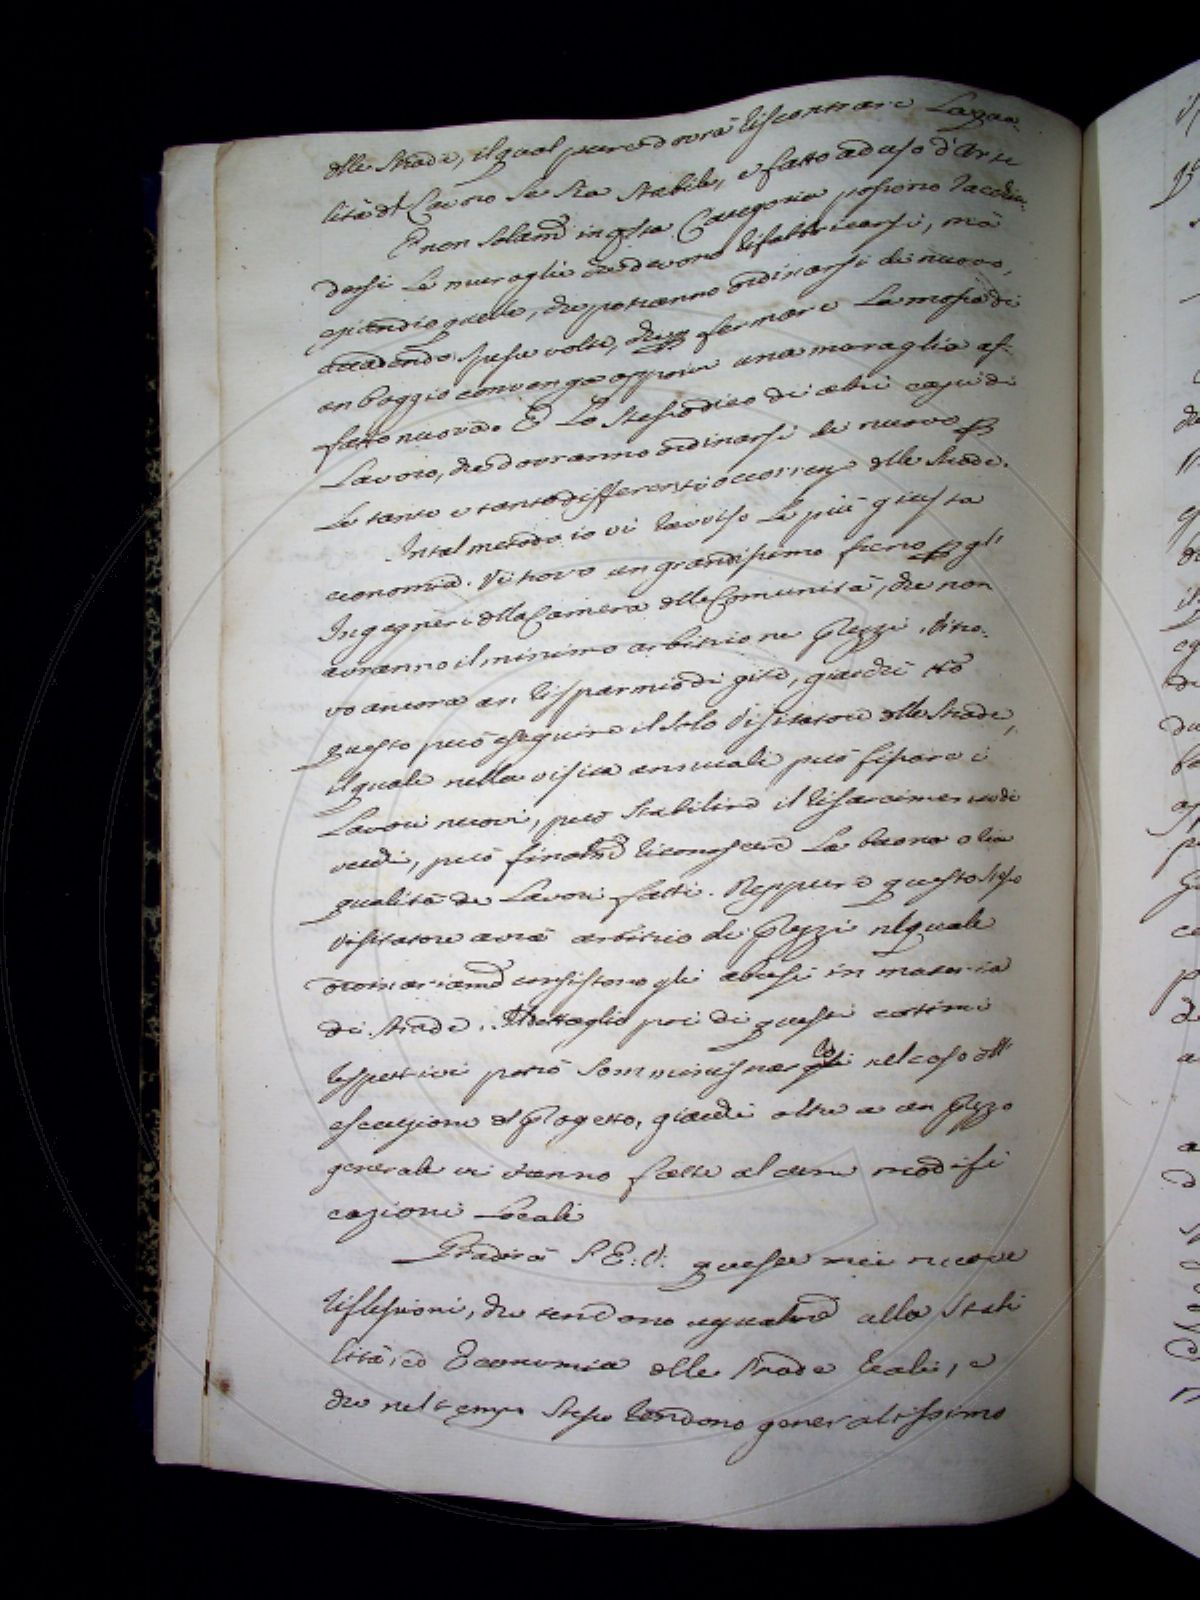 delle Strade, il qual pure dovrà riscontrare la qua-
lità del Lavoro se sia stabile, e fatto ad uso d'Arte
E non solamte in questa Categoria possono racchiu-
dersi le muraglie che devono rifabbricarsi, mà
eziandio quelle, che potranno ordinarsi di nuovo,
accadendo spesse volte, che per fermare la mossa di
un Poggio convenga apporvi una muraglia af-
fatto nuova. E lo stesso dico di altri capi di
Lavoro, che dovranno ordinarsi di nuovo per
le tante e tante differenti occorrenze delle Strade.
In tal metodo io vi ravviso la più giusta
economia. Vi trovo un grandissimo freno per gl'
Ingegneri della Camera delle Comunità, che non
avranno il minimo arbitrio ne Prezzi. Vi tro-
vo ancora un risparmio di gite, giacchè tto
questo può eseguire il solo Visitatore delle Strade,
il quale nella visita annuale può fissare i
Lavori nuovi, può stabilire il risarcimento di
vecchi, può finalmte riconoscere la buona o ria
qualità de Lavori fatti. Neppure questo stesso
Visitatore avrà arbitrio di Prezzi nel quale
ordinariamte consistono gli abusi in materia
di Strade. Il dettaglio poi di questi cottimi
respettivi potrò somministrarglielo nel caso dell'
esecuzione del Progetto, giacchè oltre a un Prezzo
generale vi vanno fatte alcune modifi
cazioni Locali
Gradirà S. E: V: queste mie nuove
riflessioni, che tendono ugualmte alla stabi
lità, ed Economia delle Strade Reali, e
che nel tempo stesso rendono generalissimo